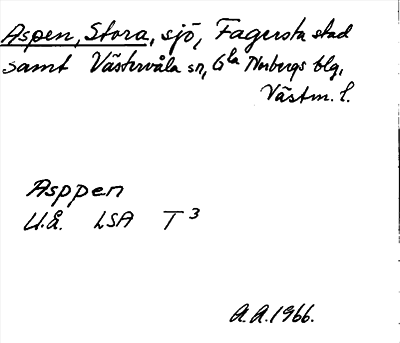 Aspen, Stora, sjö, Fagersta stad
samt Västervåla sn, Gla Norbergs blg,
Västm. l.
Asppen
U.Å. LSA T3
A.A. 1966.